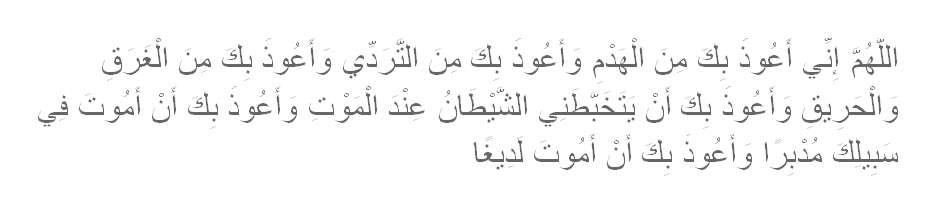 اللَّهُمَّ إِنِّي أَعُوذَ بِكَ مِنَ الْهَدْمِ وَأَعُوذَ بِكَ مِنَ التَّرَدِّي وَأَعُوذَ بِكَ مِنَ الْغَرَقِ
وَالْحَرِيقِ وَأَعُوذَ بِكَ أَنْ يَتَخَبَّطَنِي الشَّيْطَانُ عِنْدَ الْمَوْتِ وَأَعُوذَ بِكَ أَنْ أَمُوتَ فِي
سَبِيلِكَ مُدْبِرًا وَأَعُوذَ بِكَ أَنْ أَمُوتَ لَدِيغًا